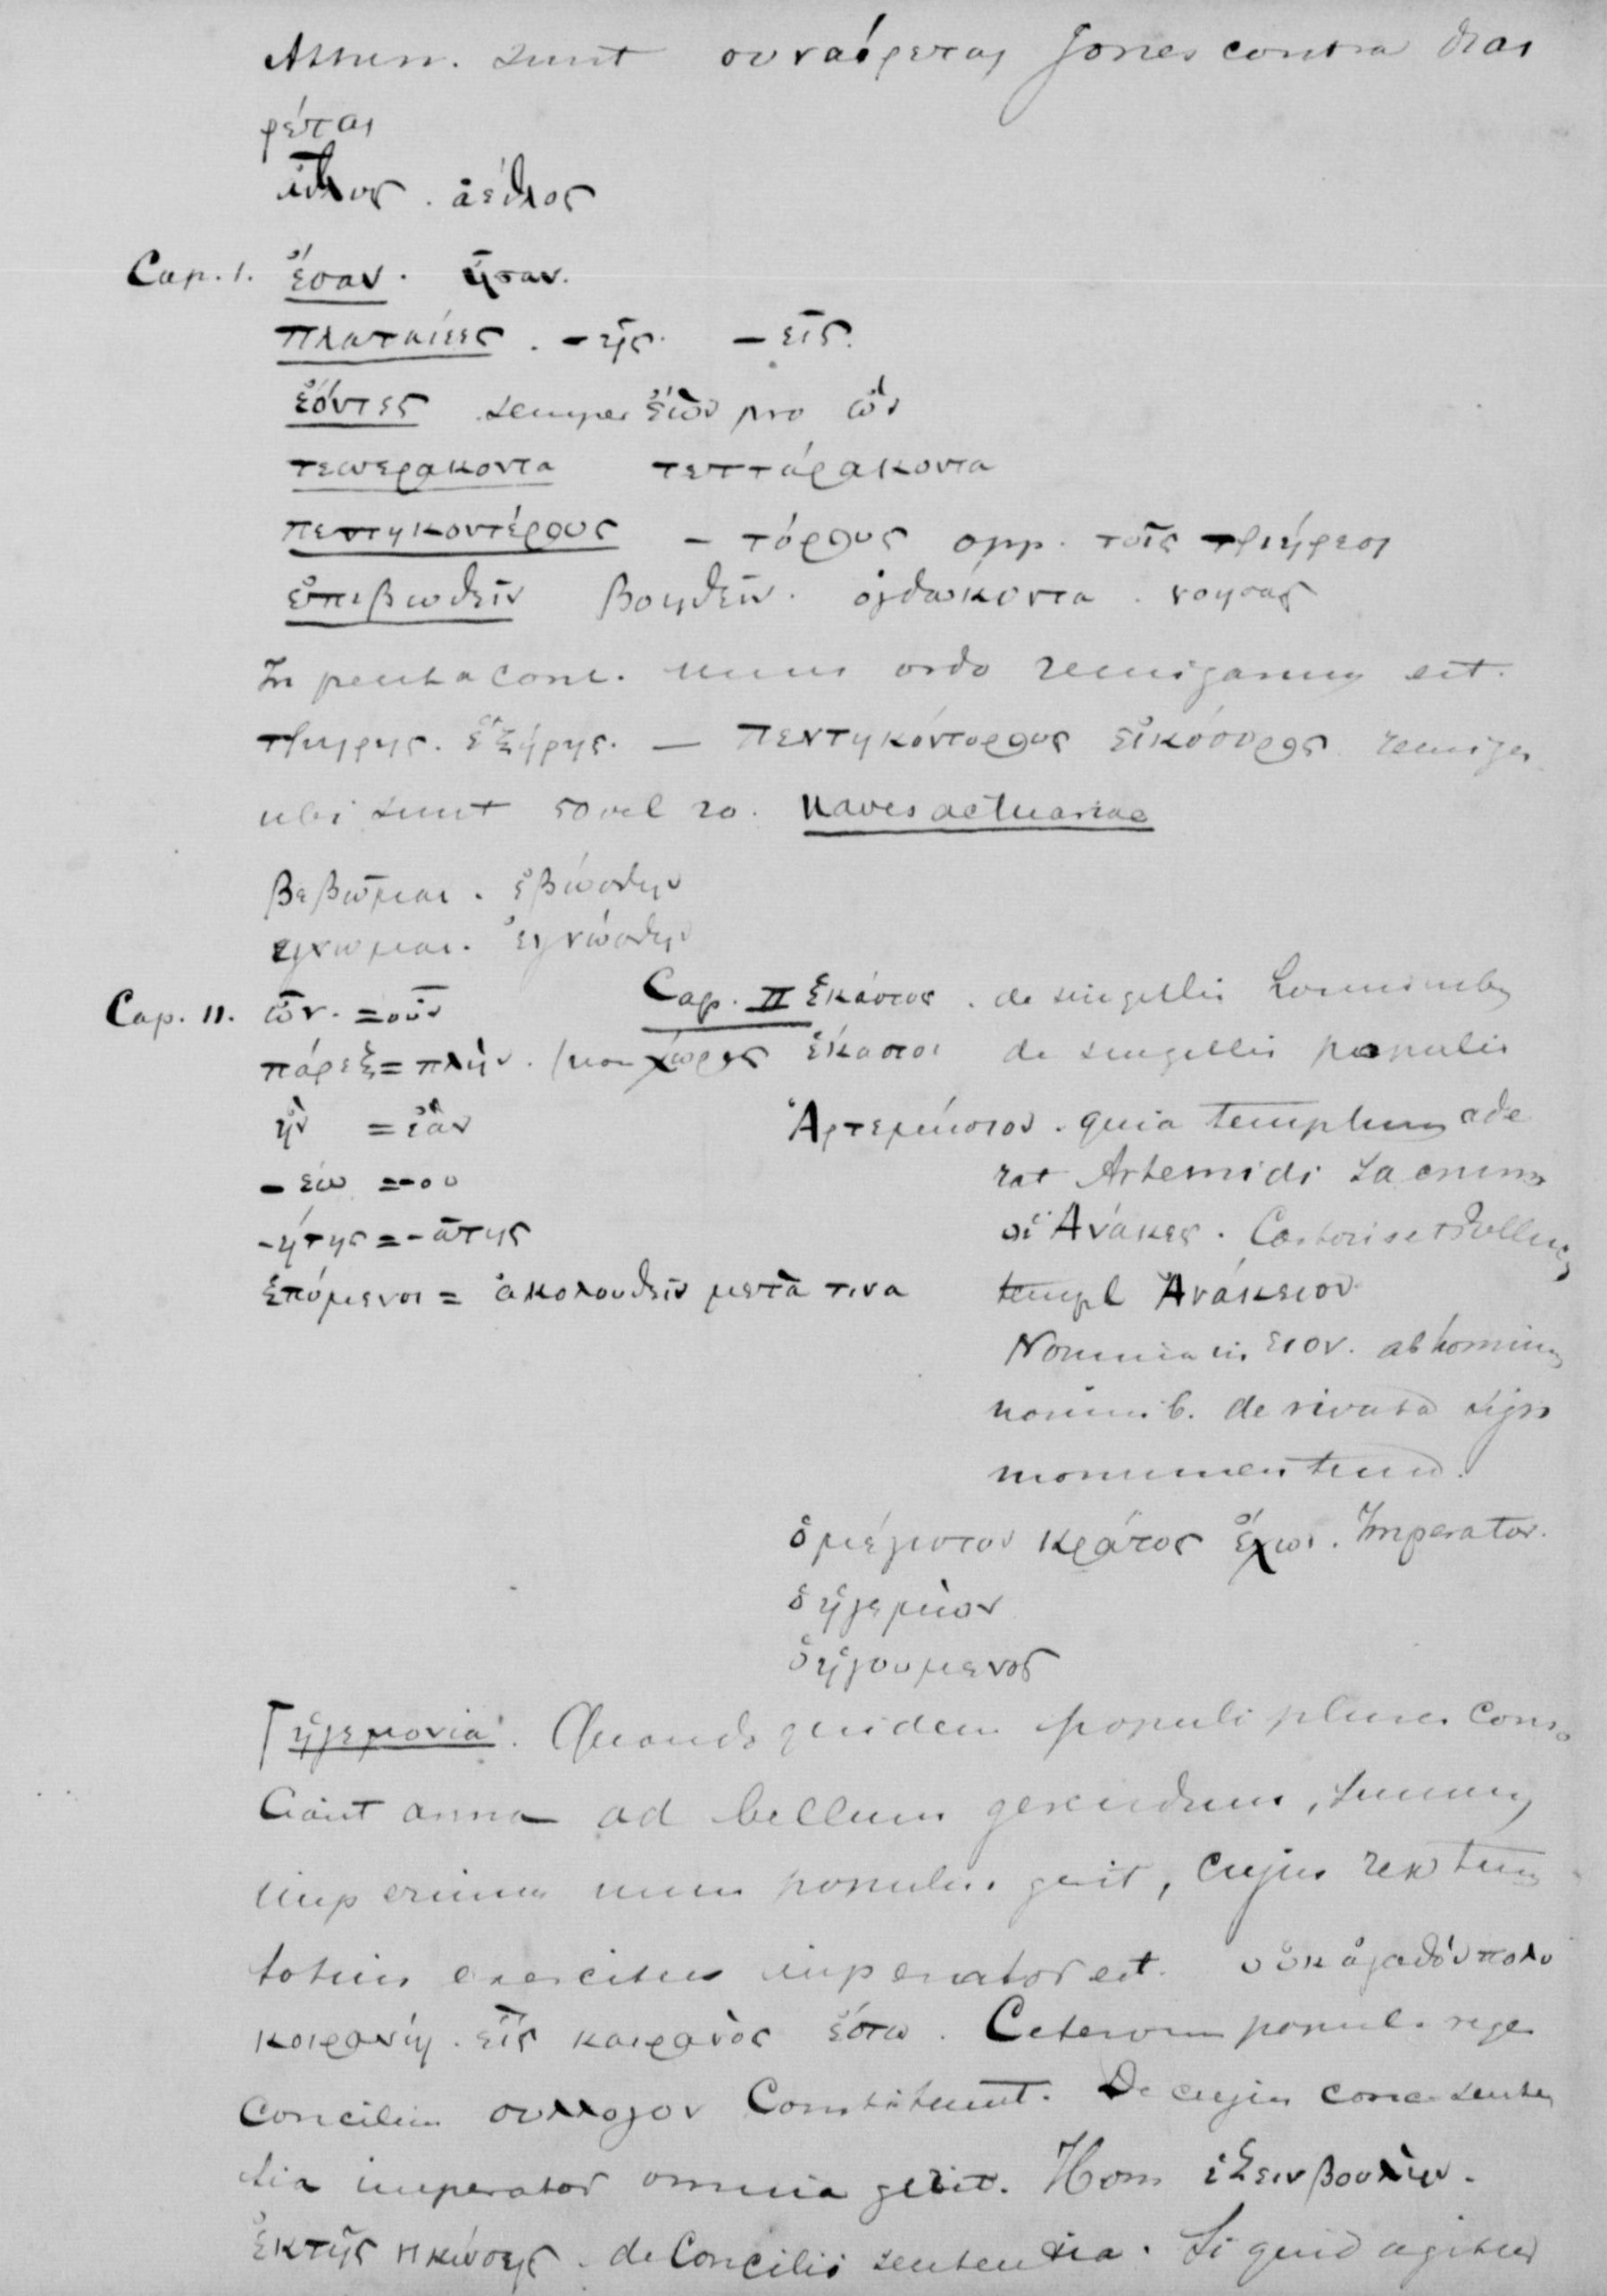 Athen. sunt συναίρεται Jones contra διαι
ρέται
ἆθλος . ἄεθλος
Cap. I. ἔσαν . ἦσαν.
Πλαταιέες . -ῆς. -εῖς.
ἐόντες semper ἐὼν pro ὢν
τεσσερακοντα τετταρακοντα
πεντηκοντέρους - τόρους opp. τοῖς τριήρεσι
ἐπιβωθεῖν βοηθεῖν . ὀγδώκοντα . νοησας
In pentacont. unus ordo remigantium est.
τριηρης . ἑξήρης . — πεντηκόντορους εἰκόσορος remiges
ubi sunt 50 vel 20. naves actuariae
βεβωμαι . ἐβώσθην
εγνωμαι . ἐγνώσθην
Cap. II. ὦν . = οὖν
πάρεξ = πλὴν . (non χωρὶς
ἢν = ἐὰν
- εω = - ου
- ήτης = - άτης
ἑπόμενοι = ἀκολουθεῖν μετὰ τινα
Cap. II ἕκαστος . de singulis hominibus
ἕκαστοι de singulis populis
Ἀρτεμίσιον . quia templum ade
rat Artemidi sacrum
οἱ Ἄνακες . Castoris et Polluc
templ Ἀνάκειον
Nomina in ειον . ab hominum
nominib. derivata sign
monumentum.
ὁ μέγιστον κράτος ἔχων . Imperator.
ὁ ἡγεμὼν
ὁ ἡγουμενος
ἡγεμονια . Quando quidem populi plures conso
ciant arma ad bellum gerendum, summum
imperium unus populus gerit, cujus rex tum
totius exercitus imperator est. οὐκ ἀγαθὸν πολυ
κοιρανίη . εἷς κοιρανὸς ἔστω . Ceterorum popul. reges
concilium συλλογον constituunt. De cujus conc. senten
tia imperator omnia gerit. Hom
ἐκ τῆς . de concilii sententia . Si quid agitur